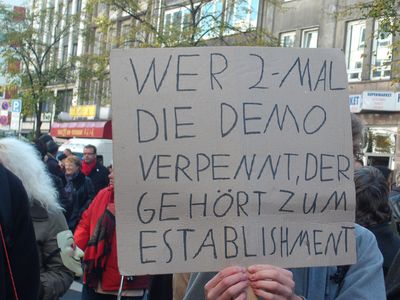 WER 2-MAL
DIE DEMO
VERPENNT, DER
GEHÖRT ZUM
ESTABLISHMENT
SUPERMARKET